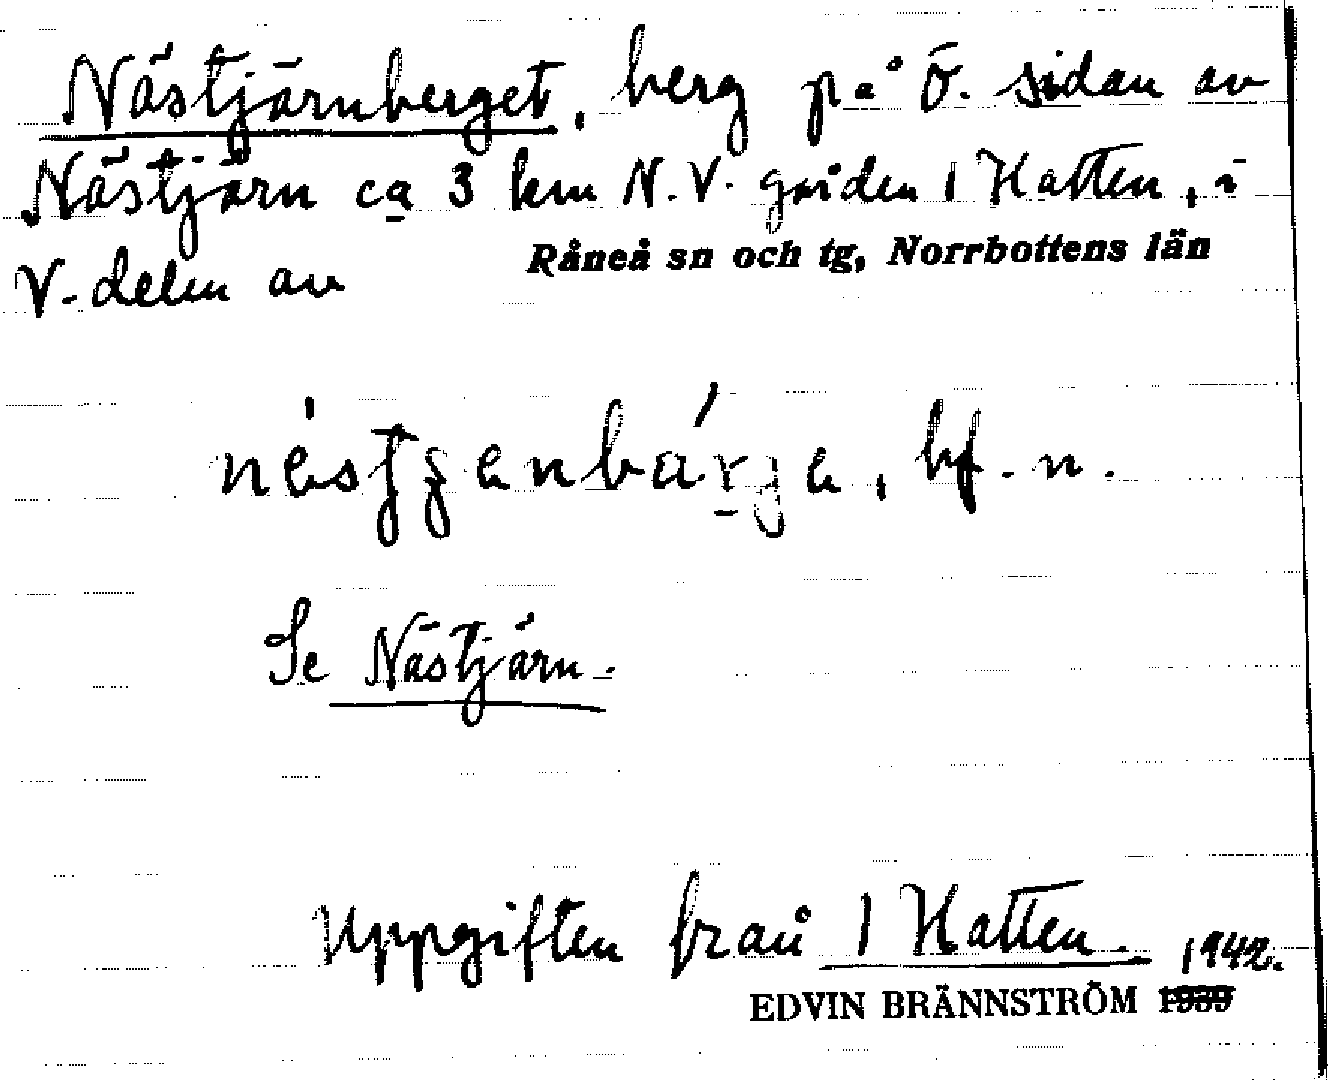 Nästjärnberget, berg på Ö. sidan av
Nästjärn ca 3 km N.V. gården 1 Hatten, i
V-delen av Råneå sn och tg, Norrbottens län
bf. n.
Se Nästjärn.
Uppgiften från 1 Hatten. 1942.
EDVIN BRÄNNSTRÖM 1939